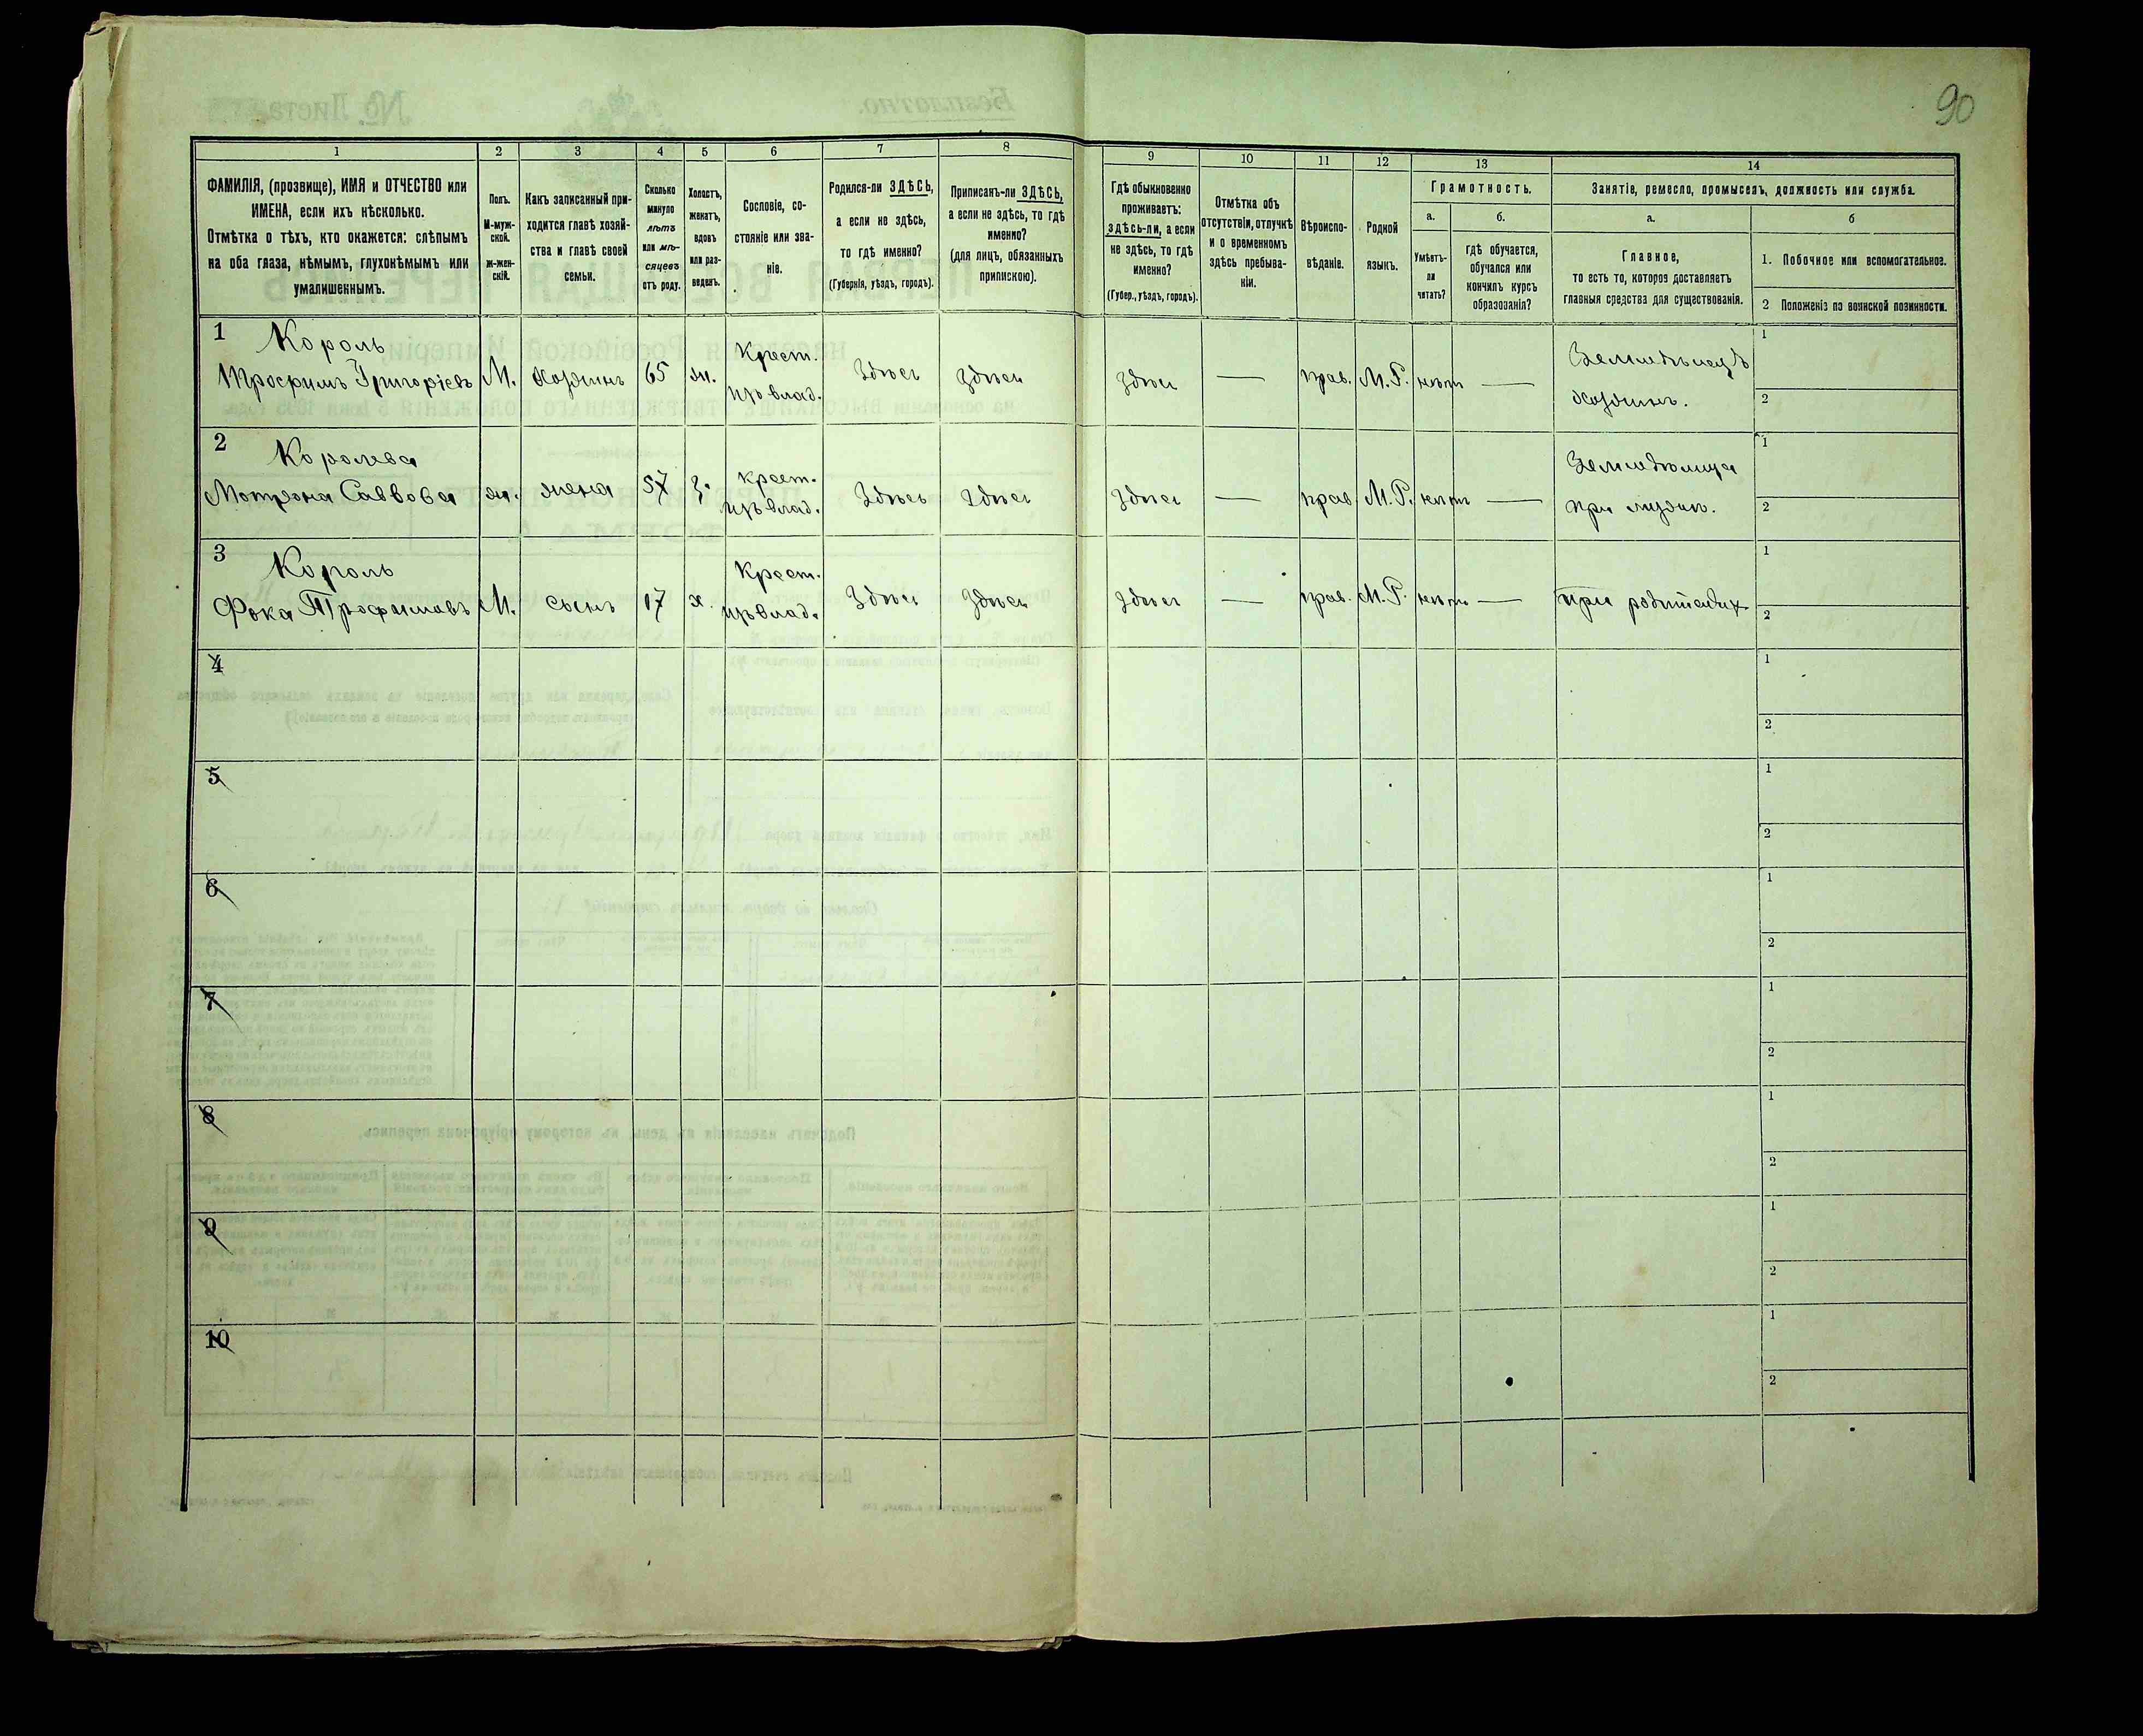 90
1 2 3 4 5 6 7 8 9 10 11 12 13 14
ФАМИЛІЯ, (прозвище), ИМЯ и ОТЧЕСТВО или
ИМЕНА, если ихъ нѣсколько.
Отмѣтка о тѣхъ, кто окажется: слѣпымъ
на оба глаза, нѣмымъ, глухонѣмымъ или
умалишеннымъ.
Полъ.
М-муж-
ской.
Ж-жен-
скій.
Какъ записанный при-
ходится главѣ хозяй-
ства и главѣ своей
семьи.
Сколько
минуло
лѣтъ
или мѣ-
сяцевъ
отъ роду.
Холостъ,
женатъ,
вдовъ
или раз-
веденъ.
Сословіе, со-
стояніе или зва-
ніе.
Родился-ли ЗДѢСЬ,
а если не здѣсь,
то гдѣ именно?
(Губернія, уѣздъ, городъ).
Приписанъ-ли ЗДѢСЬ,
а если не здѣсь, то гдѣ
именно?
(для лицъ, обязанныхъ
припискою).
Гдѣ обыкновенно
проживаетъ:
здѣсь-ли, а если
не здѣсь, то гдѣ
именно?
(Губер., уѣздъ, городъ).
Отмѣтка объ
отсутствіи, отлучкѣ
и о временномъ
здѣсь пребыва-
ніи.
Вѣроиспо-
вѣданіе.
Родной
языкъ.
Грамотность.
а.
Умѣетъ-
ли
читать?
б.
гдѣ обучается,
обучался или
кончилъ курсъ
образованія?
Занятіе, ремесло, промыселъ, должность или служба.
а.
Главное,
то есть то, которое доставляетъ
главныя средства для существованія.
б
1. Побочное или вспомогательное.
2 Положеніе по воинской повинности.
1 Король Крест. Земледѣлецъ 1
Трофимъ Григоріевъ М. Хозяинъ 65 ж. изъ влад. Здѣсь Здѣсь Здѣсь — прав. М.Р. нѣтъ — хозяинъ. 2
2 Королева крест. Земледѣлица 1
Мотрона Саввова ж. жена 57 з. изъ влад. Здѣсь Здѣсь Здѣсь — прав. М.Р. нѣтъ — при мужѣ. 2
3 Король Крест. 1
Фока Трофимовъ М. сынъ 17 х. изъ влад. Здѣсь Здѣсь Здѣсь — прав. М.Р. нѣтъ — при родителяхъ 2
4 1
2
5 1
2
6 1
2
7 1
2
8 1
2
9 1
2
10 1
2